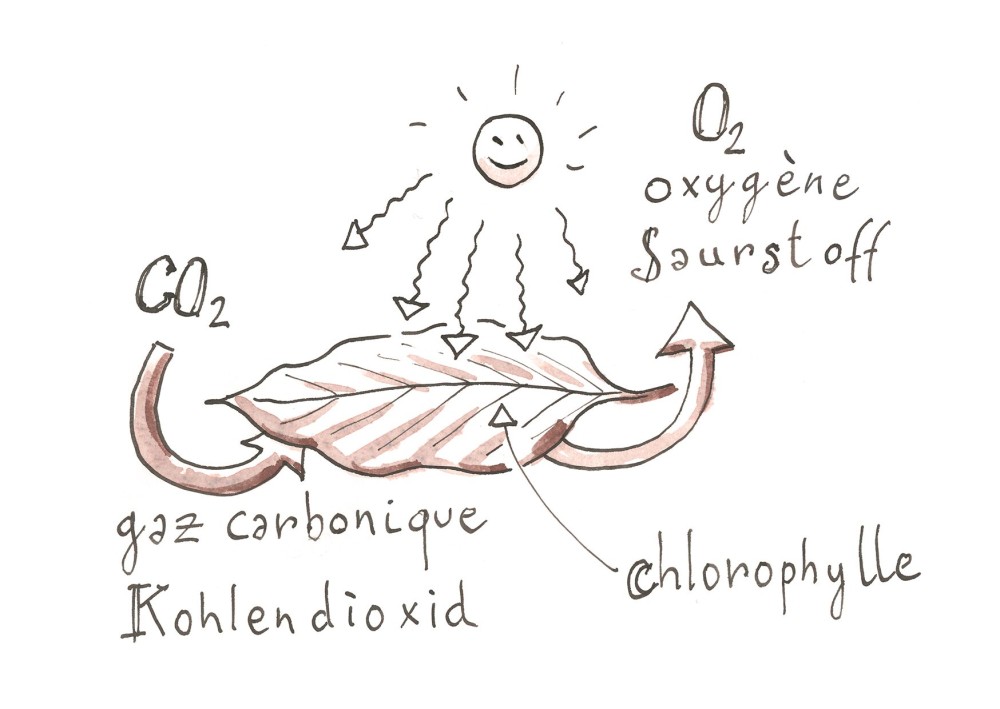 O₂
oxygène
Saurstoff
CO₂
gaz carbonique
Kohlendioxid
chlorophylle